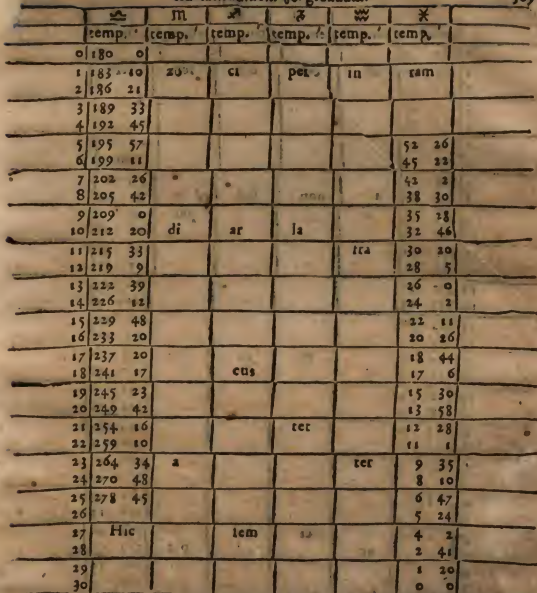 ♎ ♏ ♐ ♑ ♒ ♓
temp. ′ temp. ′ temp. ′ temp. ′ temp. ′ temp. ′
0 180 0
1 183 10 zo ci per in ram
2 186 21
3 189 33
4 192 45
5 195 57 52 26
6 199 11 45 22
7 202 26 42 2
8 205 42 38 30
9 209 0 35 28
10 212 20 di ar la 32 46
11 215 33 tra 30 20
12 219 9 28 5
13 222 39 26 0
14 226 12 24 2
15 229 48 22 11
16 233 20 20 26
17 237 20 18 44
18 241 17 cus 17 6
19 245 23 15 30
20 249 42 13 58
21 254 16 ter 12 28
22 259 10 11 1
23 264 34 a ter 9 35
24 270 48 8 10
25 278 45 6 47
26 5 24
27 Hic sem 4 2
28 2 41
29 1 20
30 0 0